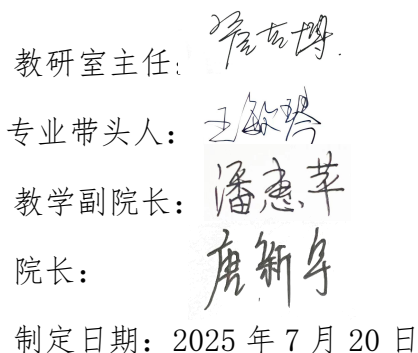 教研室主任:
专业带头人：王敏琴
教学副院长：潘惠苹
院长：唐新宇
制定日期：2025 年 7 月 20 日